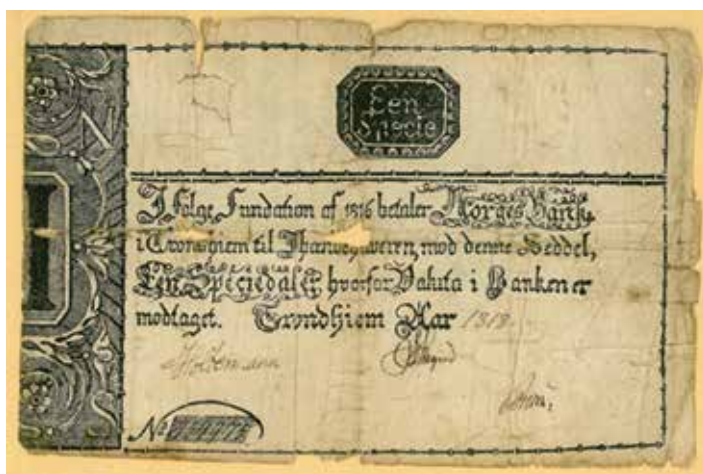 Een
Specie
I følge Fundation af 1816 betaler Norges Bank,
i Trondhiem til Ihændehaveren, mod denne Seddel,
Een Speciedaler hvorfor Valuta i Banken er
modtaget. Trondhiem Aar 1818
No